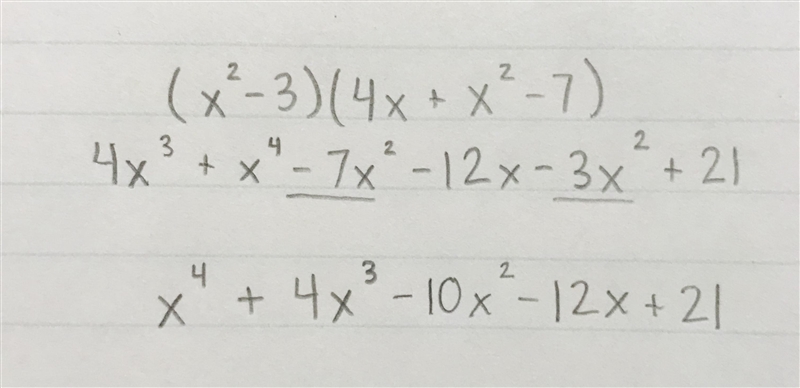 (x² - 3)(4x + x² - 7)
4x³ + x⁴ - 7x² - 12x - 3x² + 21
x⁴ + 4x³ - 10x² - 12x + 21